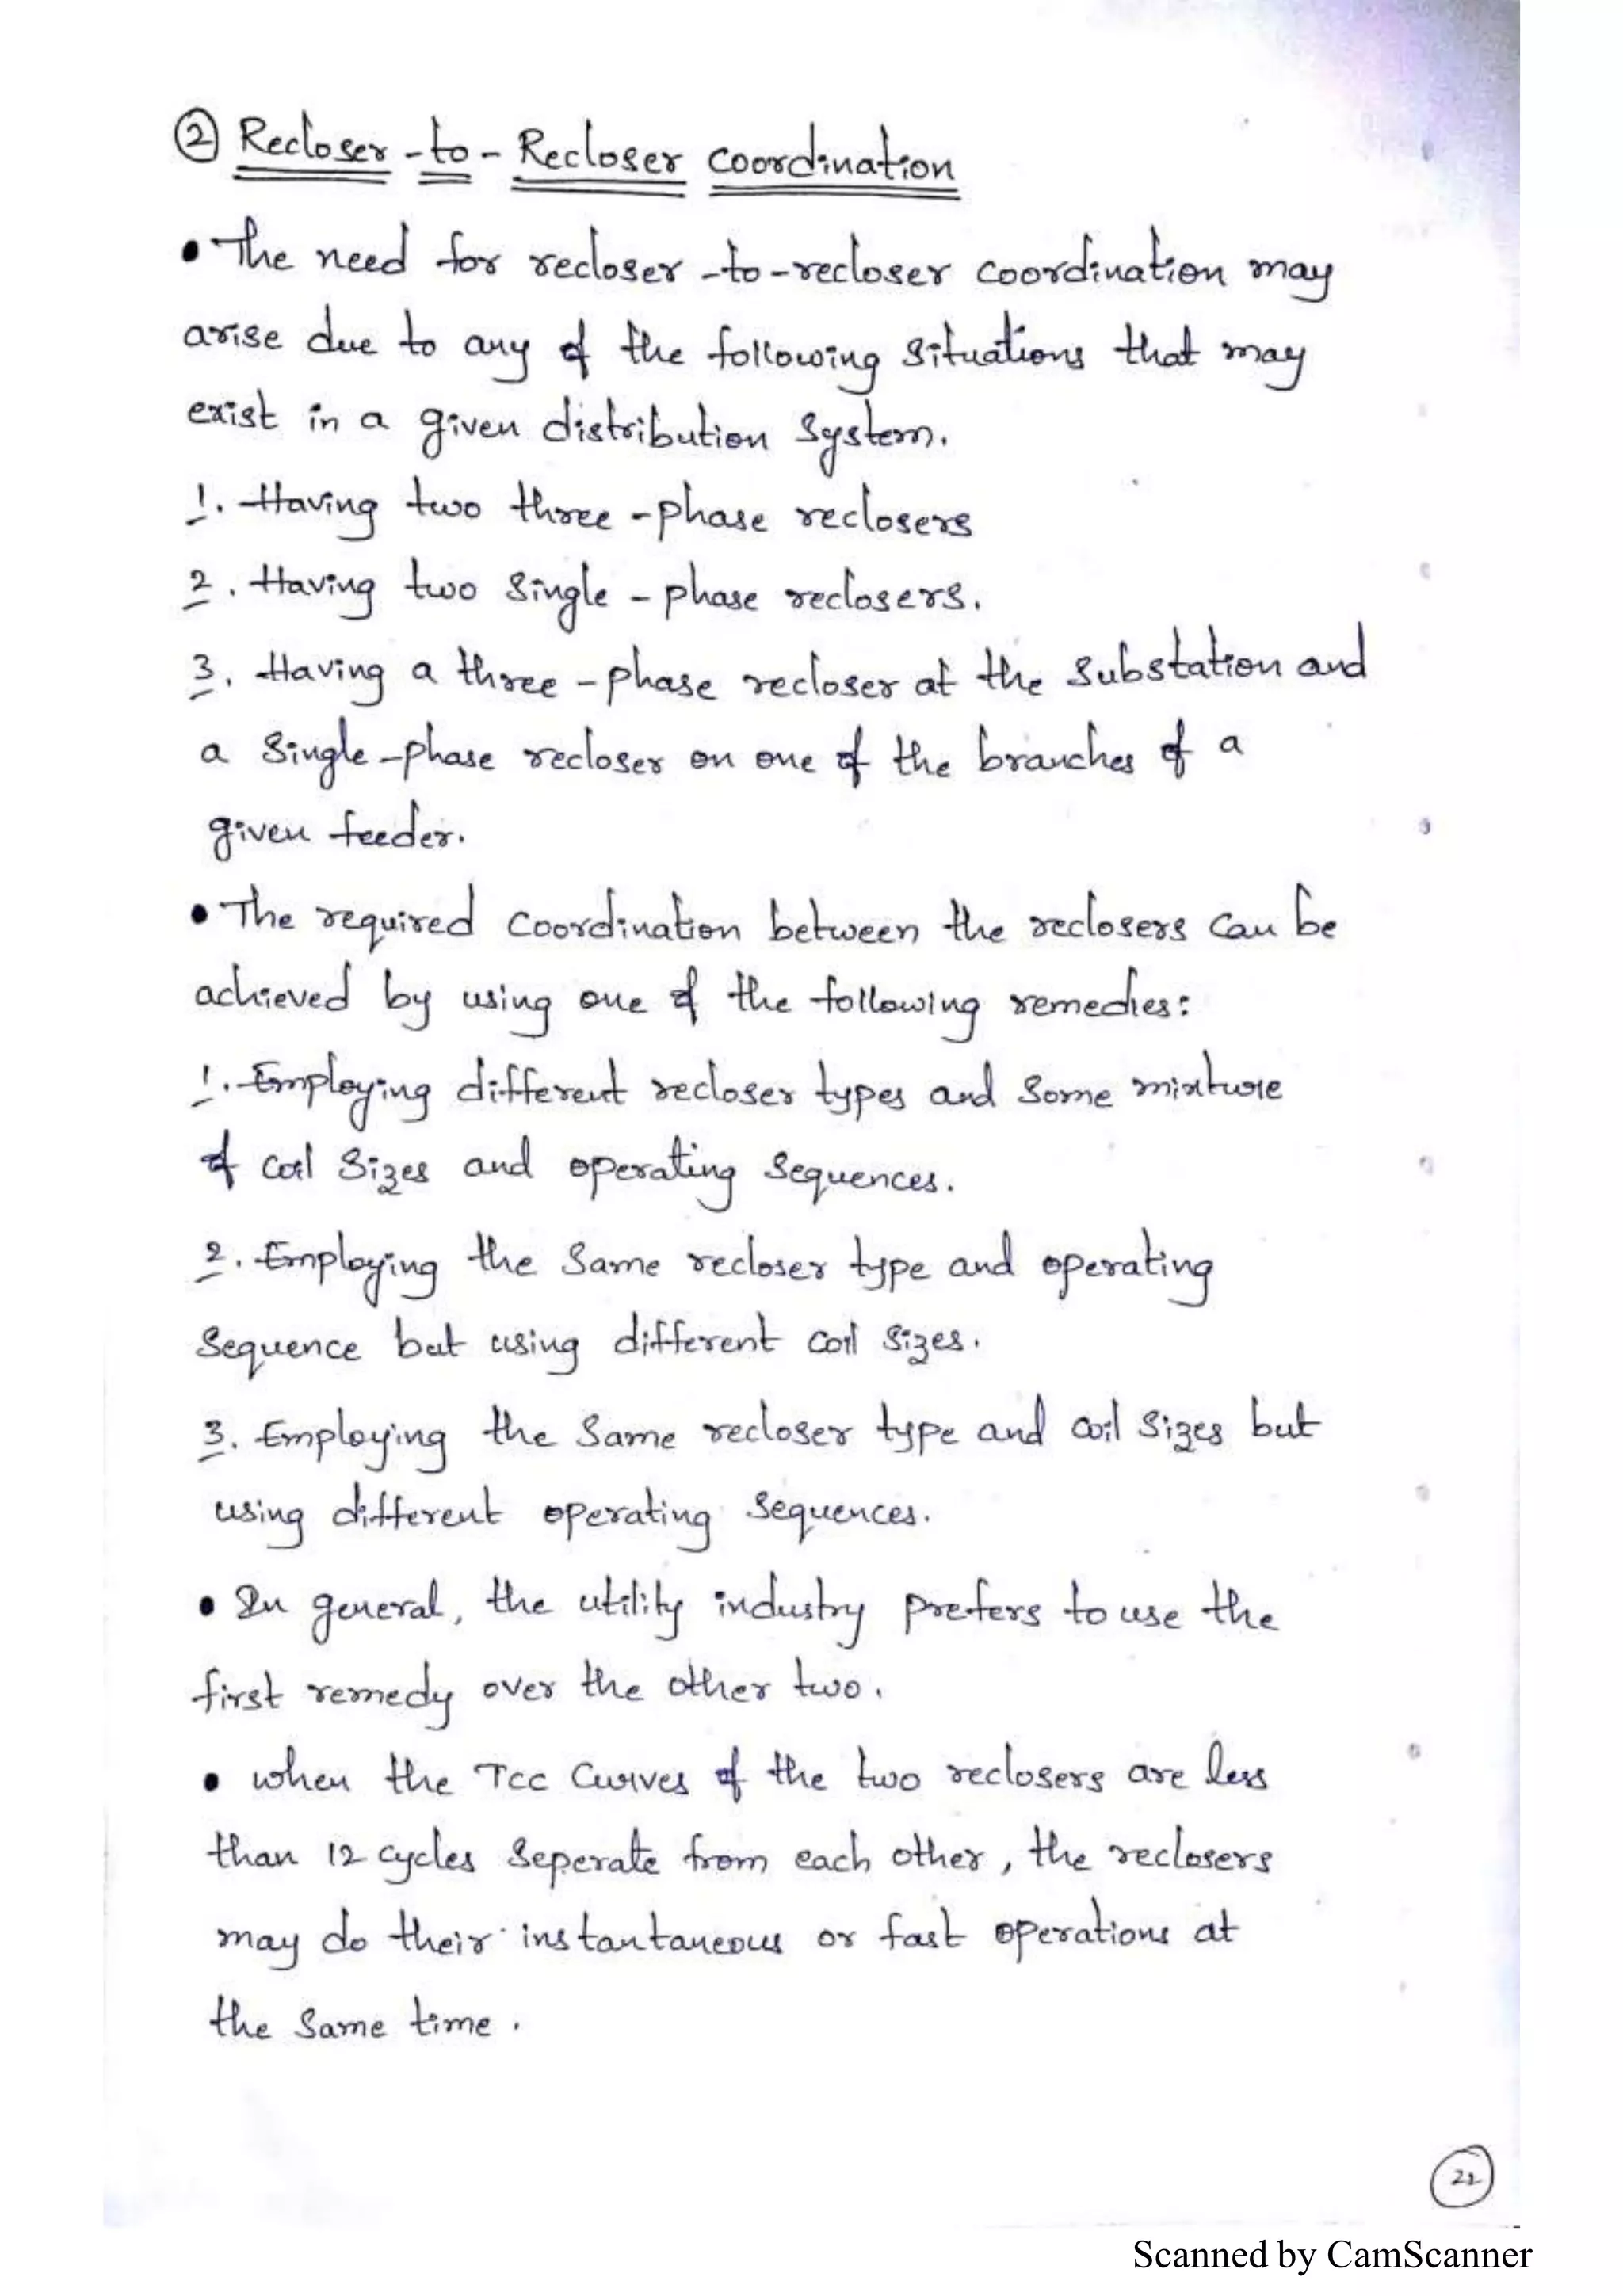 ② Recloser-to-Recloser coordination
• The need for recloser-to-recloser coordination may
arise due to any of the following situations that may
exist in a given distribution system.
1. Having two three-phase reclosers
2. Having two single-phase reclosers.
3. Having a three-phase recloser at the substation and
a single-phase recloser on one of the branches of a
given feeder.
• The required coordination between the reclosers can be
achieved by using one of the following remedies:
1. Employing different recloser types and some mixture
of coil sizes and operating sequences.
2. Employing the same recloser type and operating
sequence but using different coil sizes.
3. Employing the same recloser type and coil sizes but
using different operating sequences.
• In general, the utility industry prefers to use the
first remedy over the other two.
• when the TCC curves of the two reclosers are less
than 12 cycles seperate from each other, the reclosers
may do their instantaneous or fast operations at
the same time.
Scanned by CamScanner